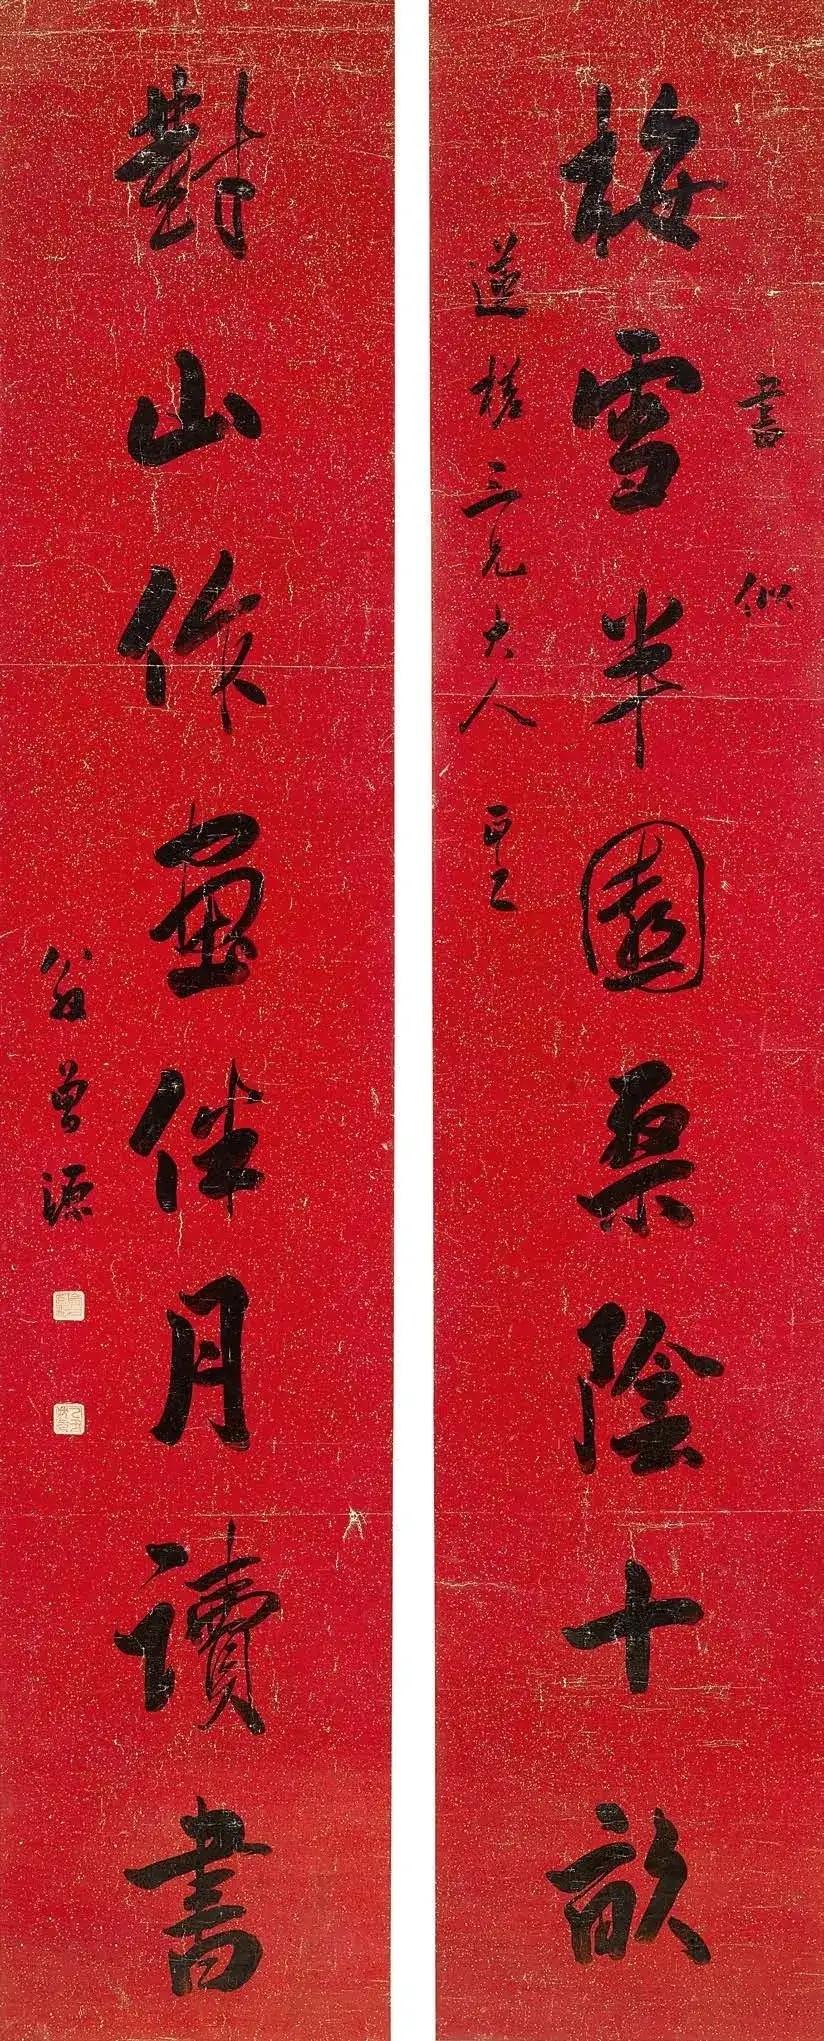 書似
梅雪半園桑陰十畝
蓮槎三兄大人正之
對山作畫伴月讀書
翁曾源